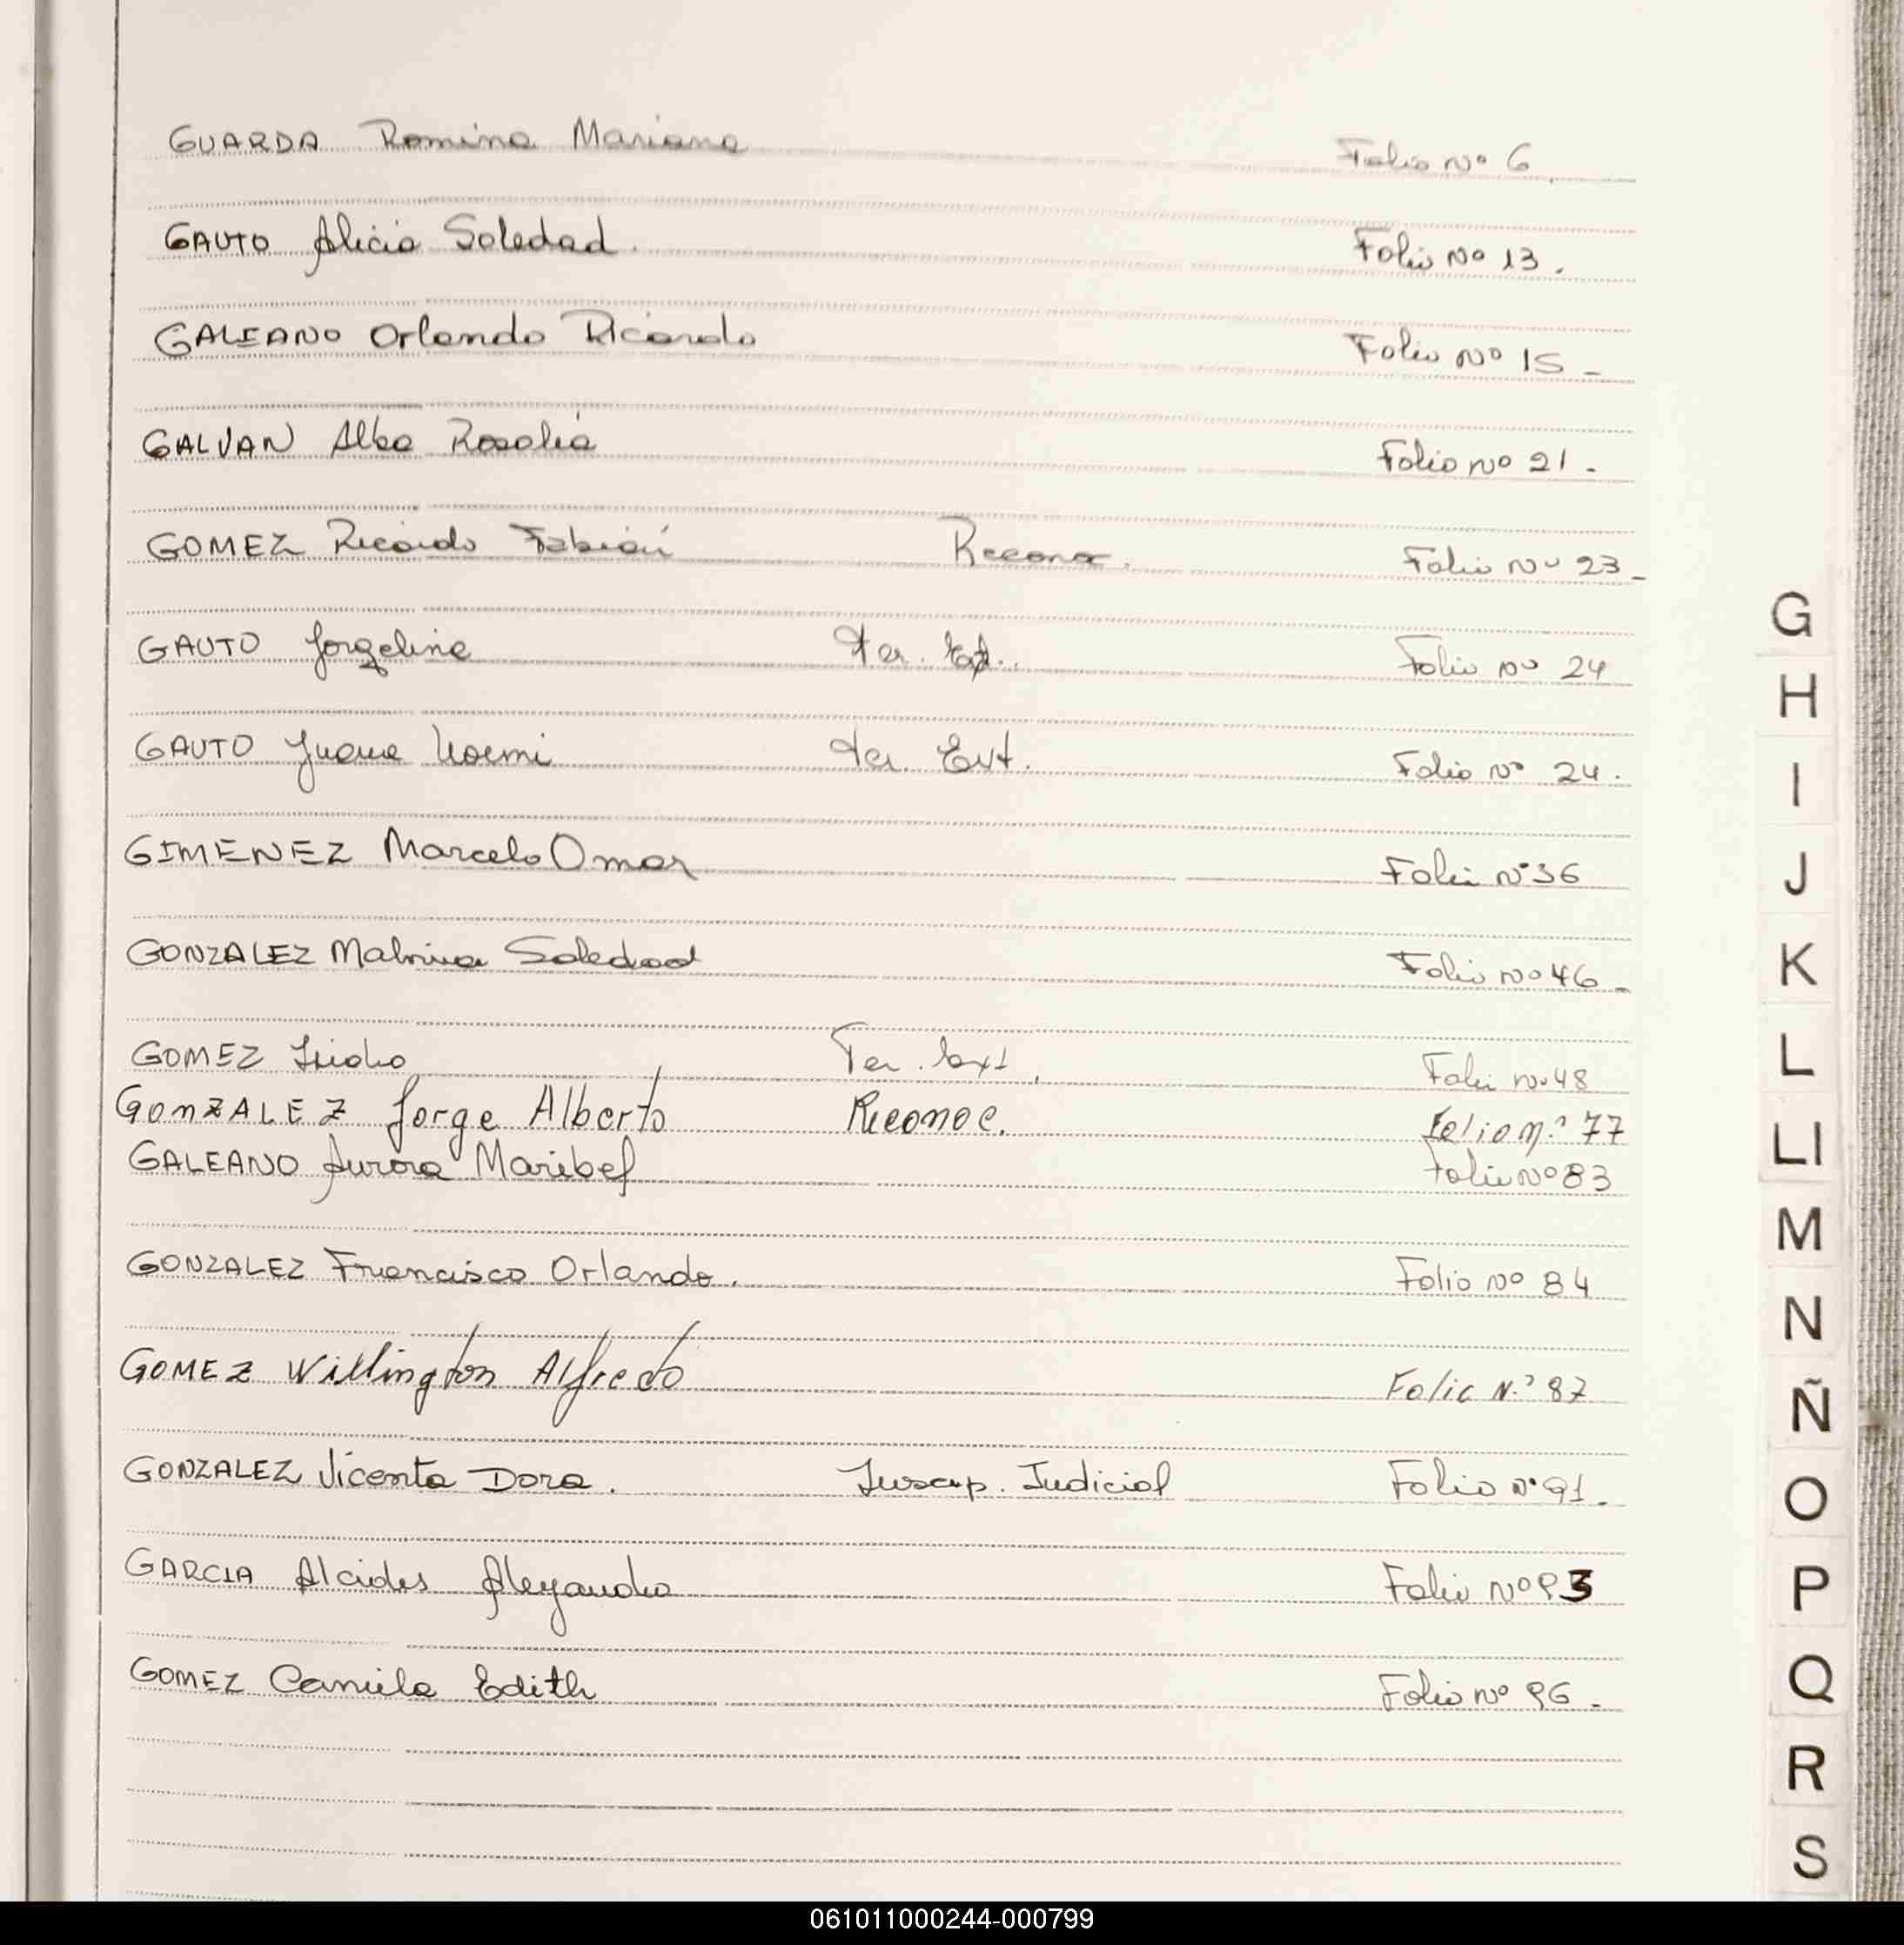 GUARDA Romina Mariana Folio Nº 6
GAUTO Alicia Soledad. Folio Nº 13.
GALEANO Orlando Ricardo Folio Nº 15 -
GALVAN Alba Rosalía Folio Nº 21.-
GOMEZ Ricardo Fabián Reconoc. Folio Nº 23-
GAUTO Jorgelina Ter. Ext. Folio Nº 24
GAUTO Juana Noemi Ter. Ext. Folio Nº 24.
GIMENEZ Marcelo Omar Folio Nº 36
GONZALEZ Malvina Soledad Folio Nº 46-
GOMEZ Ter. Ext. Folio Nº 48
GONZALEZ Jorge Alberto Reconoc. Folio n.º 77
GALEANO Aurora Maribel Folio Nº 83
GONZALEZ Francisco Orlando. Folio Nº 84
GOMEZ Willington Alfredo Folio N.º 87
GONZALEZ Vicenta Dora. Inscrip. Judicial Folio Nº 91.
GARCIA Alcides Alejandro Folio Nº 93
GOMEZ Camila Edith Folio Nº 96-
G
H
I
J
K
L
Ll
M
N
Ñ
O
P
Q
R
S
061011000244-000799